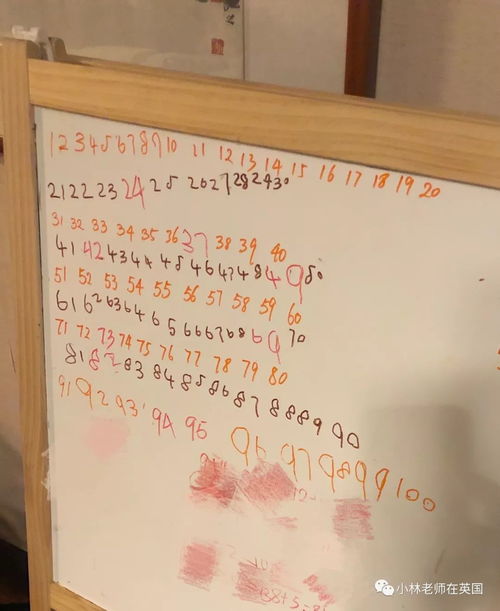 1 2 3 4 5 6 7 8 9 10 11 12 13 14 15 16 17 18 19 20
21 22 23 24 25 26 27 28 29 30
31 32 33 34 35 36 37 38 39 40
41 42 43 44 45 46 47 48 49 50
51 52 53 54 55 56 57 58 59 60
61 62 63 64 65 66 67 68 69 70
71 72 73 74 75 76 77 78 79 80
81 82 83 84 85 86 87 88 89 90
91 92 93 94 95 96 97 98 99 100
小林老师在英国